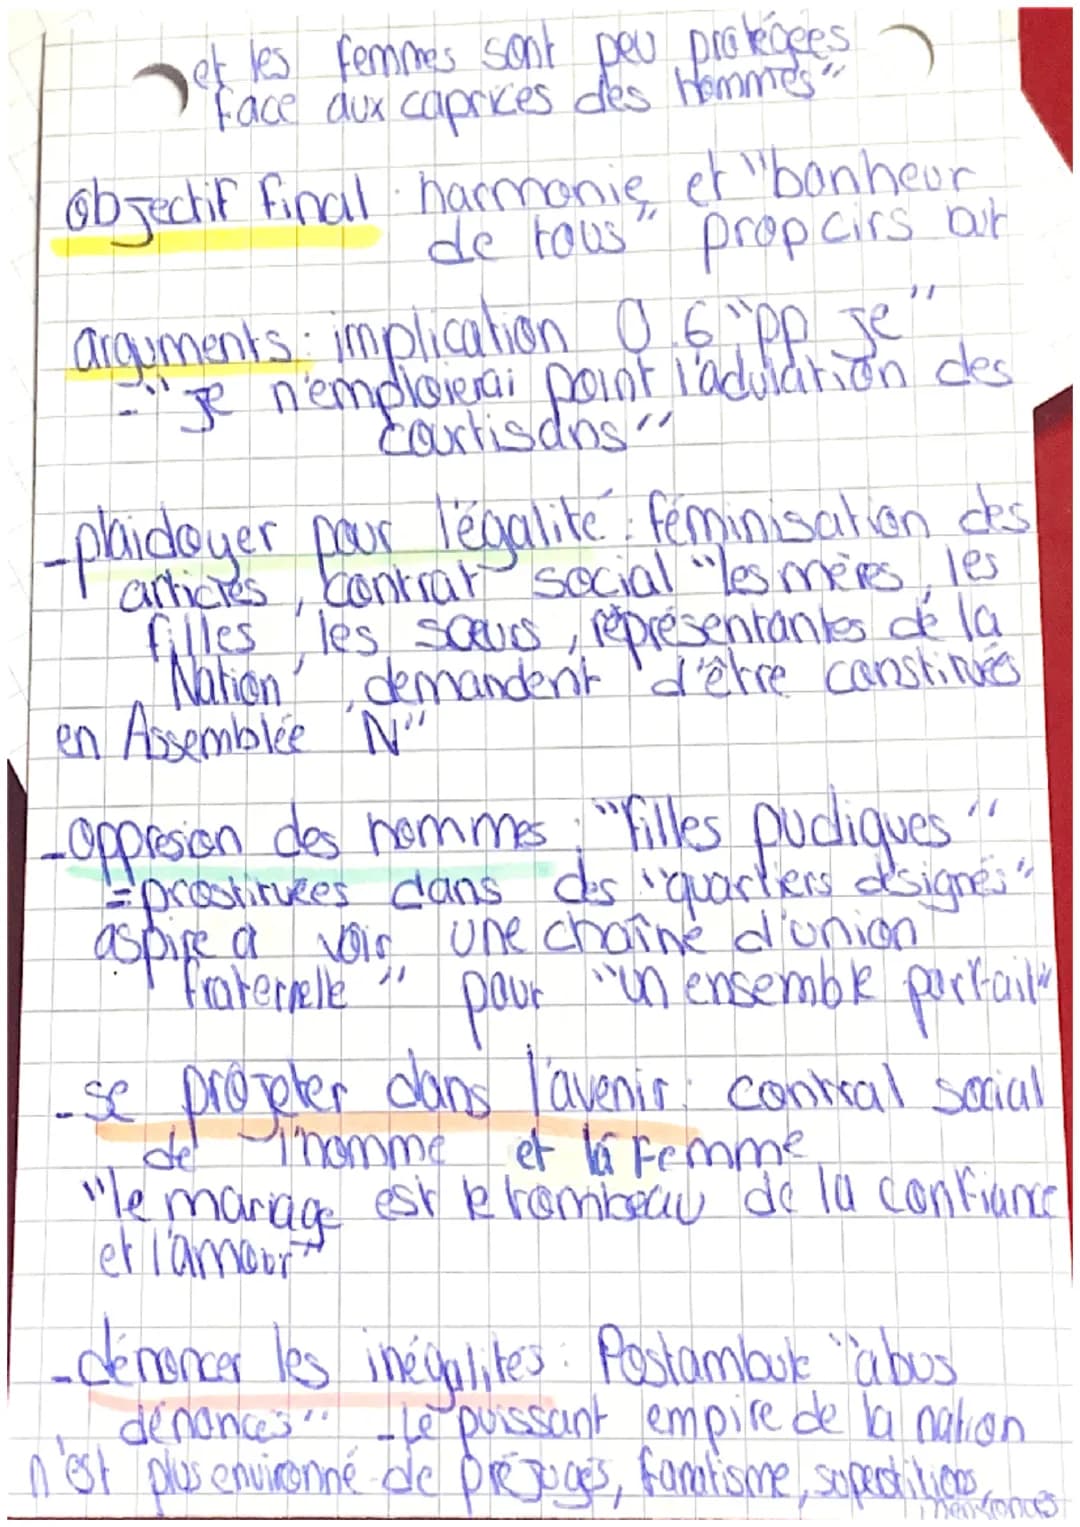 et les femmes sont peu protégées
face aux caprices des hommes"
objectif final : harmonie et "bonheur
de tous" propcirs art
arguments : implication O.G "pp je"
- "je n'emploierai point l'adulation des
courtisans"
- plaidoyer pour l'égalité : féminisation des
articles, contrat social "les mères, les
filles, les sœurs, représentantes de la
Nation, demandent d'être constitués
en Assemblée N"
- oppresion des hommes : "filles pudiques"
= prostituées dans des "quartiers désignés"
aspire a voir une chaîne d'union
fraternelle" pour "un ensemble parfait"
- se projeter dans l'avenir : contrat social
de l'homme et la Femme
"le mariage est le tombeau de la confiance
et l'amour"
- dénoncer les inégalités : Postambule "abus
dénoncés" - Le "puissant empire de la nation
n'est plus environné de préjugés, fanatisme, superstitions,
mensonges